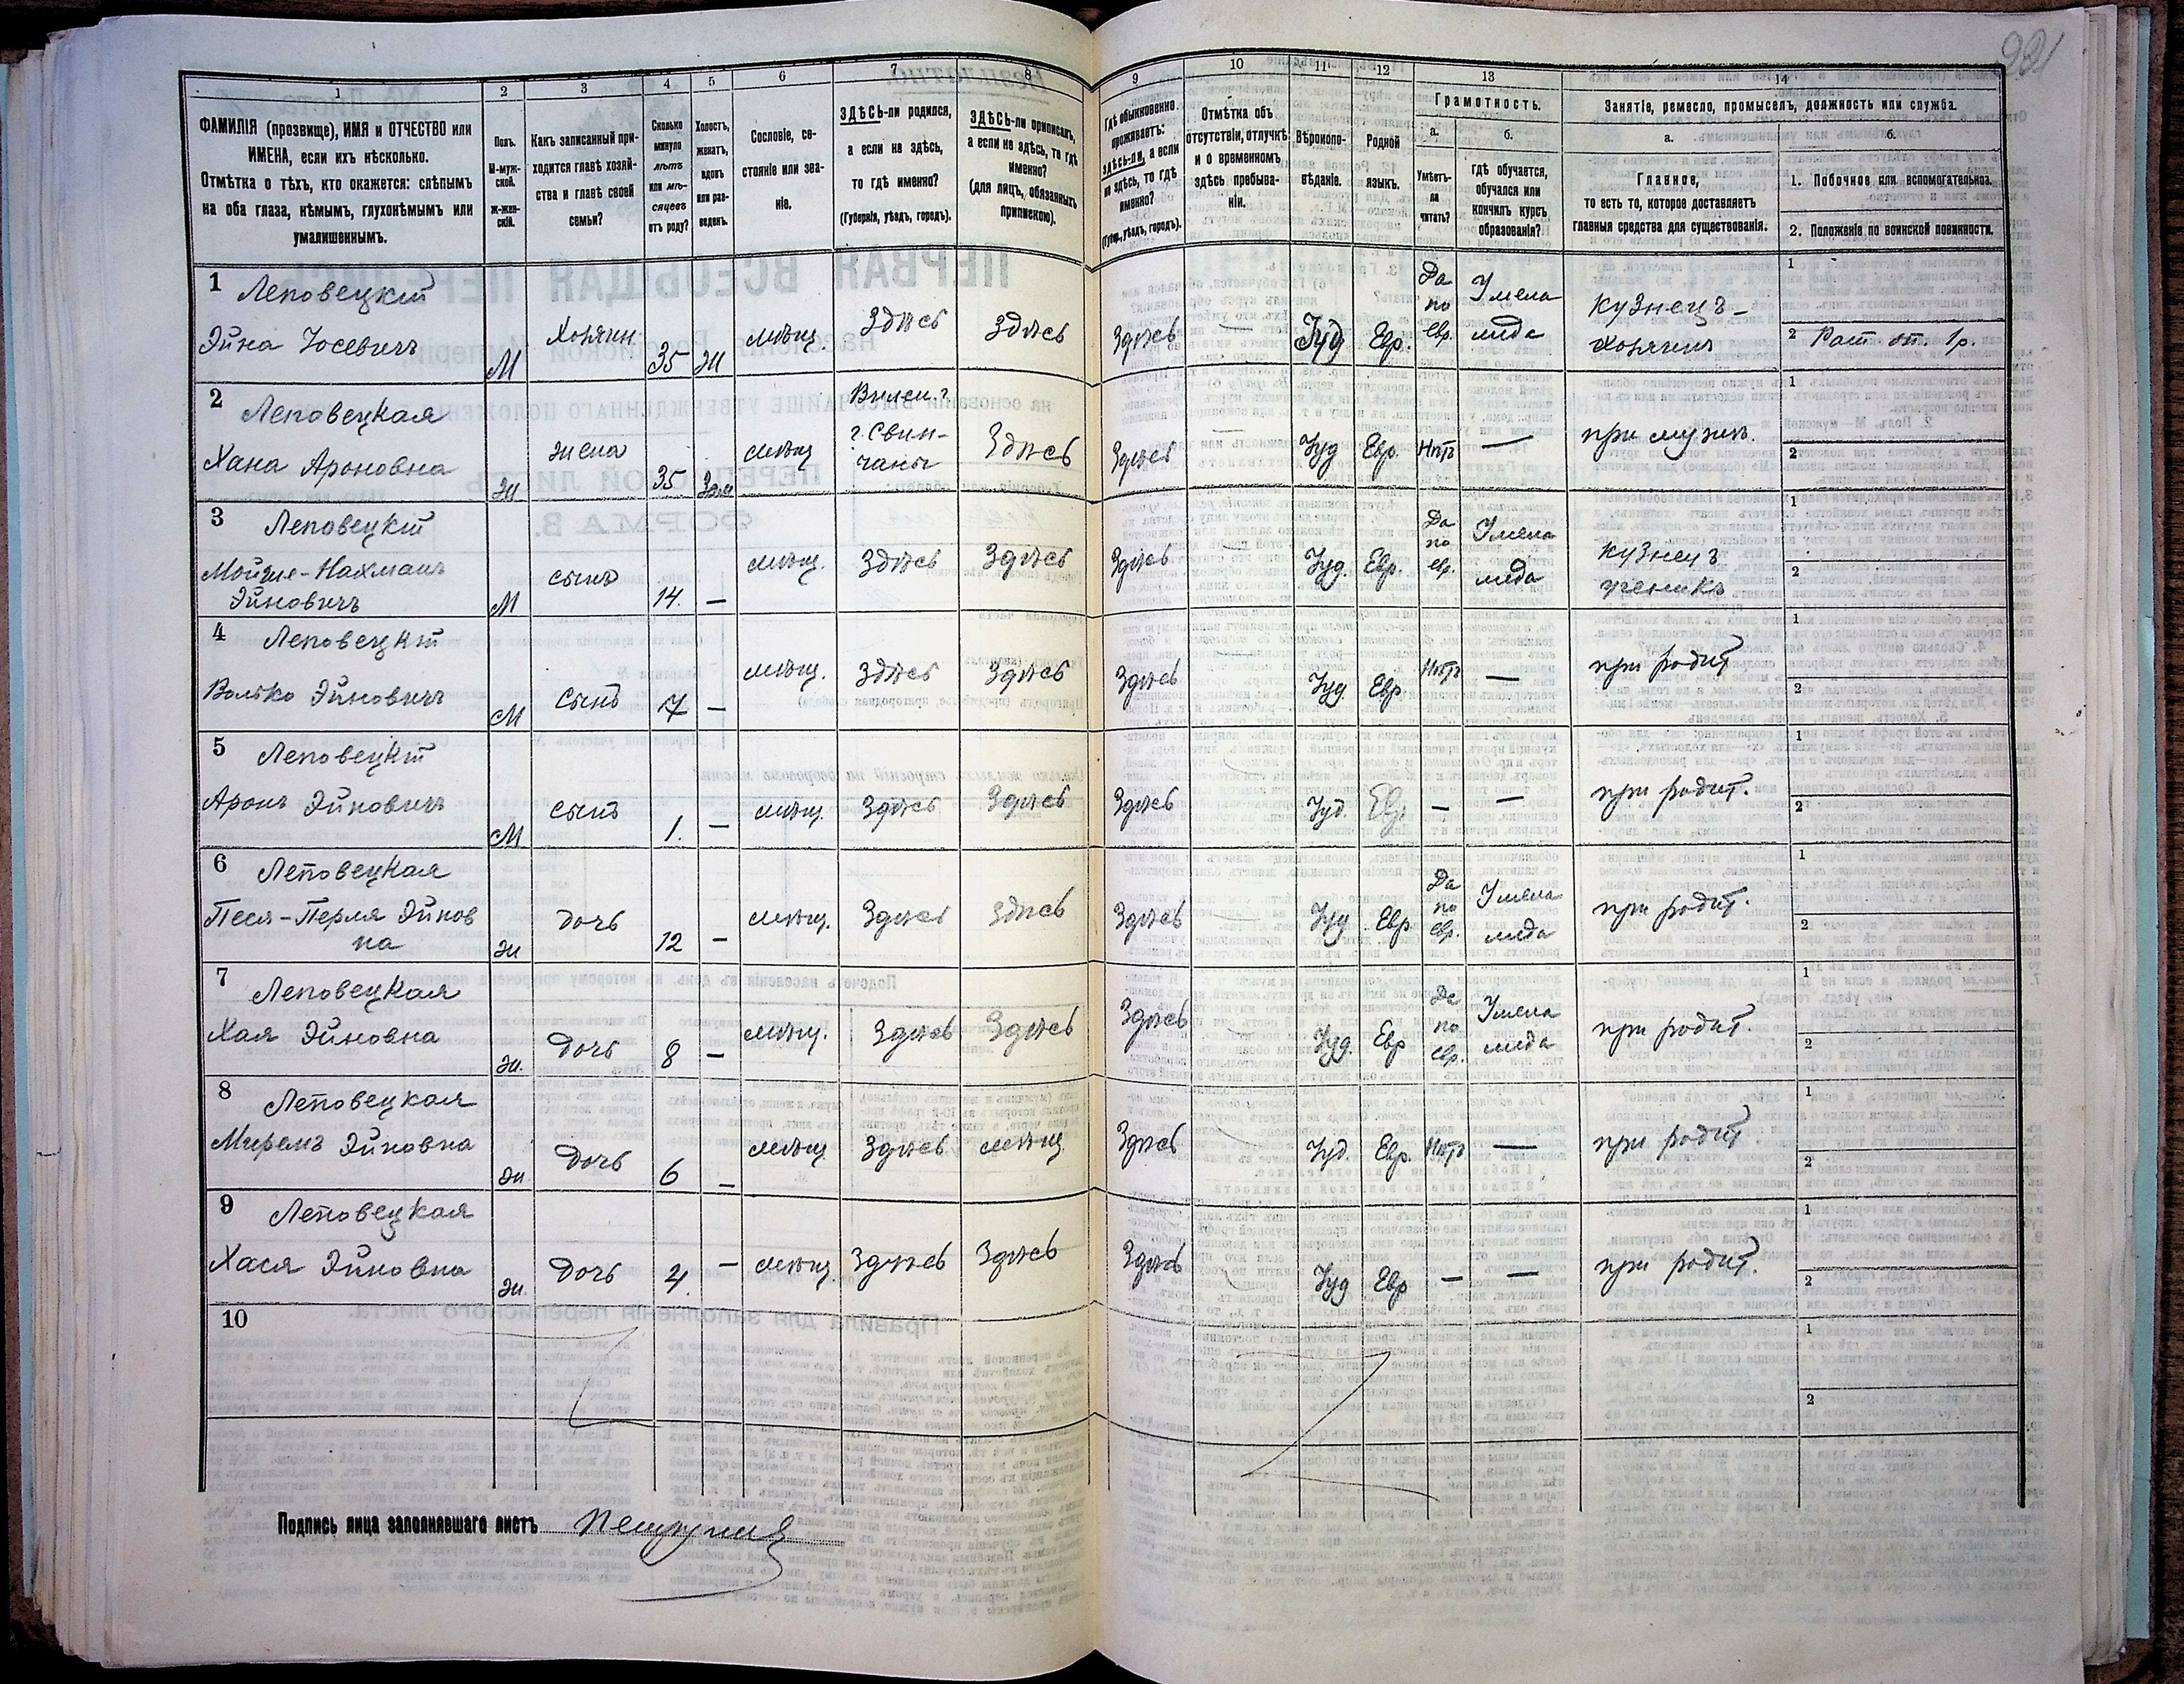 981
1 2 3 4 5 6 7 8 9 10 11 12 13 14
ФАМИЛІЯ (прозвище), ИМЯ и ОТЧЕСТВО или
ИМЕНА, если ихъ нѣсколько.
Отмѣтка о тѣхъ, кто окажется: слѣпымъ
на оба глаза, нѣмымъ, глухонѣмымъ или
умалишеннымъ.
Полъ.
М-муж-
ской.
Ж-жен-
скій.
Какъ записанный при-
ходится главѣ хозяй-
ства и главѣ своей
семьи?
Сколько
минуло
лѣтъ
или мѣ-
сяцевъ
отъ роду?
Холостъ,
женатъ,
вдовъ
или раз-
веденъ.
Сословіе, со-
стояніе или зва-
ніе.
ЗДѢСЬ-ли родился,
а если не здѣсь,
то гдѣ именно?
(Губернія, уѣздъ, городъ).
ЗДѢСЬ-ли приписанъ,
а если не здѣсь, то гдѣ
именно?
(для лицъ, обязанныхъ
припискою).
Гдѣ обыкновенно
проживаетъ:
здѣсь-ли, а если
не здѣсь, то гдѣ
именно?
(Губер., уѣздъ, городъ).
Отмѣтка объ
отсутствіи, отлучкѣ
и о временномъ
здѣсь пребыва-
ніи.
Вѣроиспо-
вѣданіе.
Родной
языкъ.
Грамотность.
а.
Умѣетъ-
ли
читать?
б.
гдѣ обучается,
обучался или
кончилъ курсъ
образованія?
Занятіе, ремесло, промыселъ, должность или служба.
а.
Главное,
то есть то, которое доставляетъ
главныя средства для существованія.
б.
1. Побочное или вспомогательное.
2. Положеніе по воинской повинности.
1 Леповецкій
Эйна Іосевичъ М Хозяинъ 35 ж мѣщ. Здѣсь Здѣсь Здѣсь — Іуд Евр. Да по евр. У мела меда кузнецъ - хозяинъ 1
2 Рат. оп. 1 р.
2 Леповецкая
Хана Ароновна ж жена 35 Зам мѣщ Вилен. г. г. Свин-чаны Здѣсь Здѣсь — Іуд Евр. Нѣтъ — при мужѣ. 1
2
3 Леповецкій
Мойше-Нахманъ
Эйновичъ М сынъ 14. — мѣщ. Здѣсь Здѣсь Здѣсь — Іуд. Евр. Да по евр. У мела меда кузнецъ ученикъ 1
2
4 Леповецкій
Волько Эйновичъ М Сынъ — мѣщ. Здѣсь Здѣсь Здѣсь Іуд Евр Нѣтъ — при родит 1
2
5 Леповецкій
Аронъ Эйновичъ М Сынъ 1. — мѣщ. Здѣсь Здѣсь Здѣсь Іуд. Евр. — — при родит. 1
2
6 Леповецкая
Песя-Перля Эйнов
на ж дочь 12 — мѣщ. Здѣсь Здѣсь Здѣсь Іуд Евр Да по евр. У мела меда при родит. 1
2
7 Леповецкая
Хая Эйновна ж. Дочь 8 — мѣщ. Здѣсь Здѣсь Здѣсь Іуд. Евр Да по евр. У мела меда при родит. 1
2
8 Леповецкая
Миремъ Эйновна ж Дочь 6 — мѣщ Здѣсь мѣщ. Здѣсь Іуд. Евр Нѣтъ — при родит 1
2
9 Леповецкая
Хася Эйновна ж. Дочь 4. — мѣщ. Здѣсь Здѣсь Здѣсь Іуд Евр — — при родит. 1
2
10 1
2
Подпись лица заполнявшаго листъ